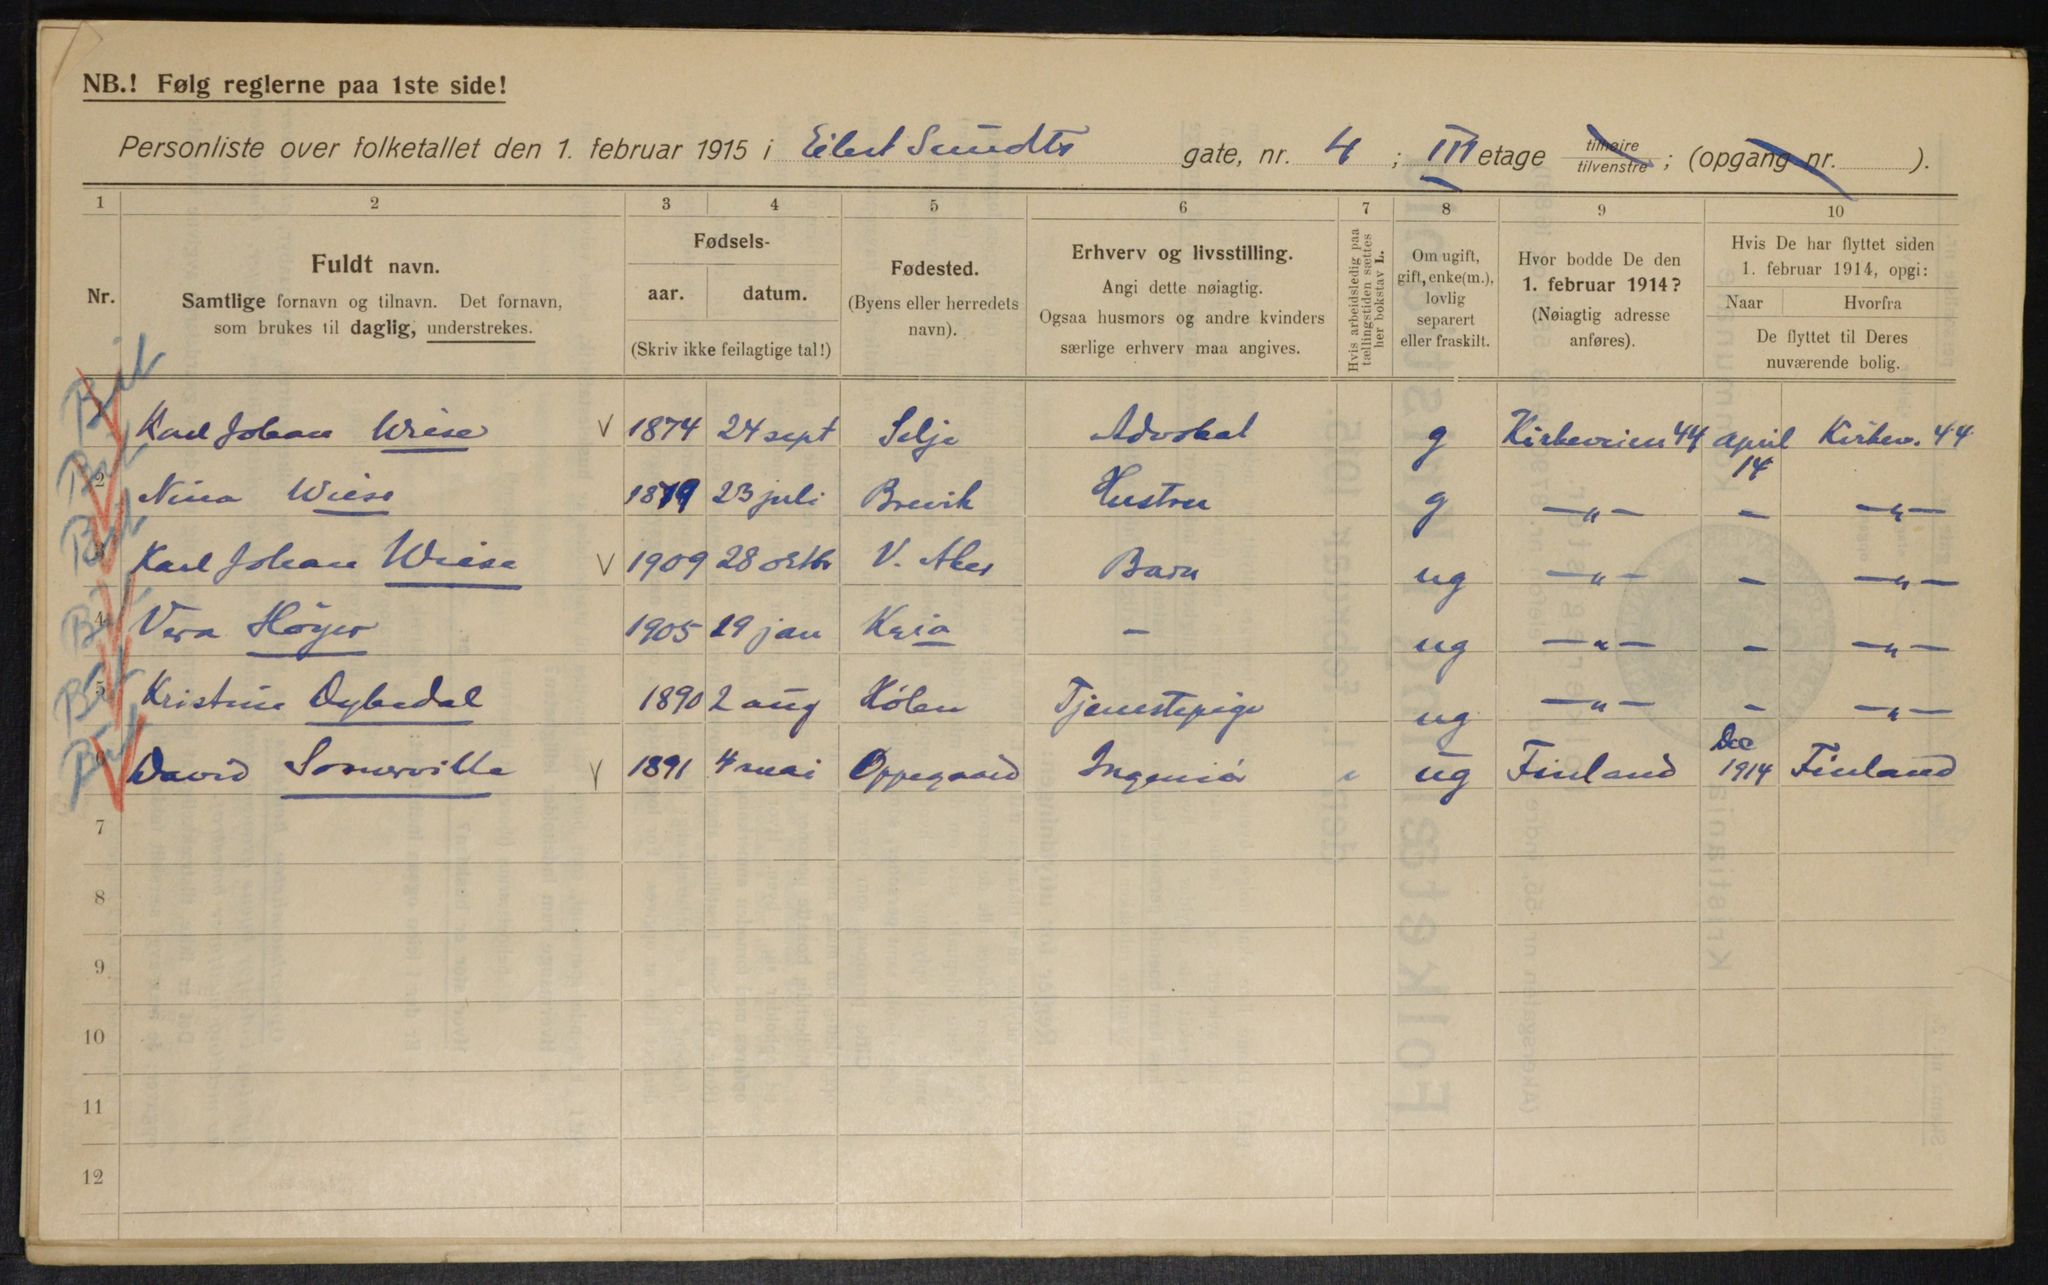 NB.! Følg reglerne paa 1ste side!
Personliste over folketallet den 1. februar 1915 i Eilert Sundts gate, nr. 4 ; III etage tilhøire tilvenstre ; (opgang nr. ).
1 2 3 4 5 6 7 8 9 10
Nr.
Fuldt navn.
Samtlige fornavn og tilnavn. Det fornavn,
som brukes til daglig, understrekes.
Fødsels-
aar. datum.
(Skriv ikke feilagtige tal!)
Fødested.
(Byens eller herredets
navn).
Erhverv og livsstilling.
Angi dette nøiagtig.
Ogsaa husmors og andre kvinders
særlige erhverv maa angives.
Hvis arbeidsledig paa
tællingstiden sættes
her bokstav L.
Om ugift,
gift, enke(m.),
lovlig
separert
eller fraskilt.
Hvor bodde De den
1. februar 1914?
(Nøiagtig adresse
anføres).
Hvis De har flyttet siden
1. februar 1914, opgi:
Naar Hvorfra
De flyttet til Deres
nuværende bolig.
Karl Johan Wiese V 1874 24 sept Selje Advokat g Kirkeveien 44 april 14 Kirkev. 44
2 Nina Wiese 1879 23 juli Brevik Hustru g — " — — — " —
3 Karl Johan Wiese V 1909 28 oktbr V. Aker Barn ug — " — — — " —
4 Vera Höyer 1905 29 jan Kria — ug — " — — — " —
5 Kristine Dybedal 1890 2 aug Hølen Tjenestepige ug — " — — — " —
6 David Somerville V 1891 4 mai Oppegaard Ingeniør ug Finland Dec 1914 Finland
7
8
9
10
11
12